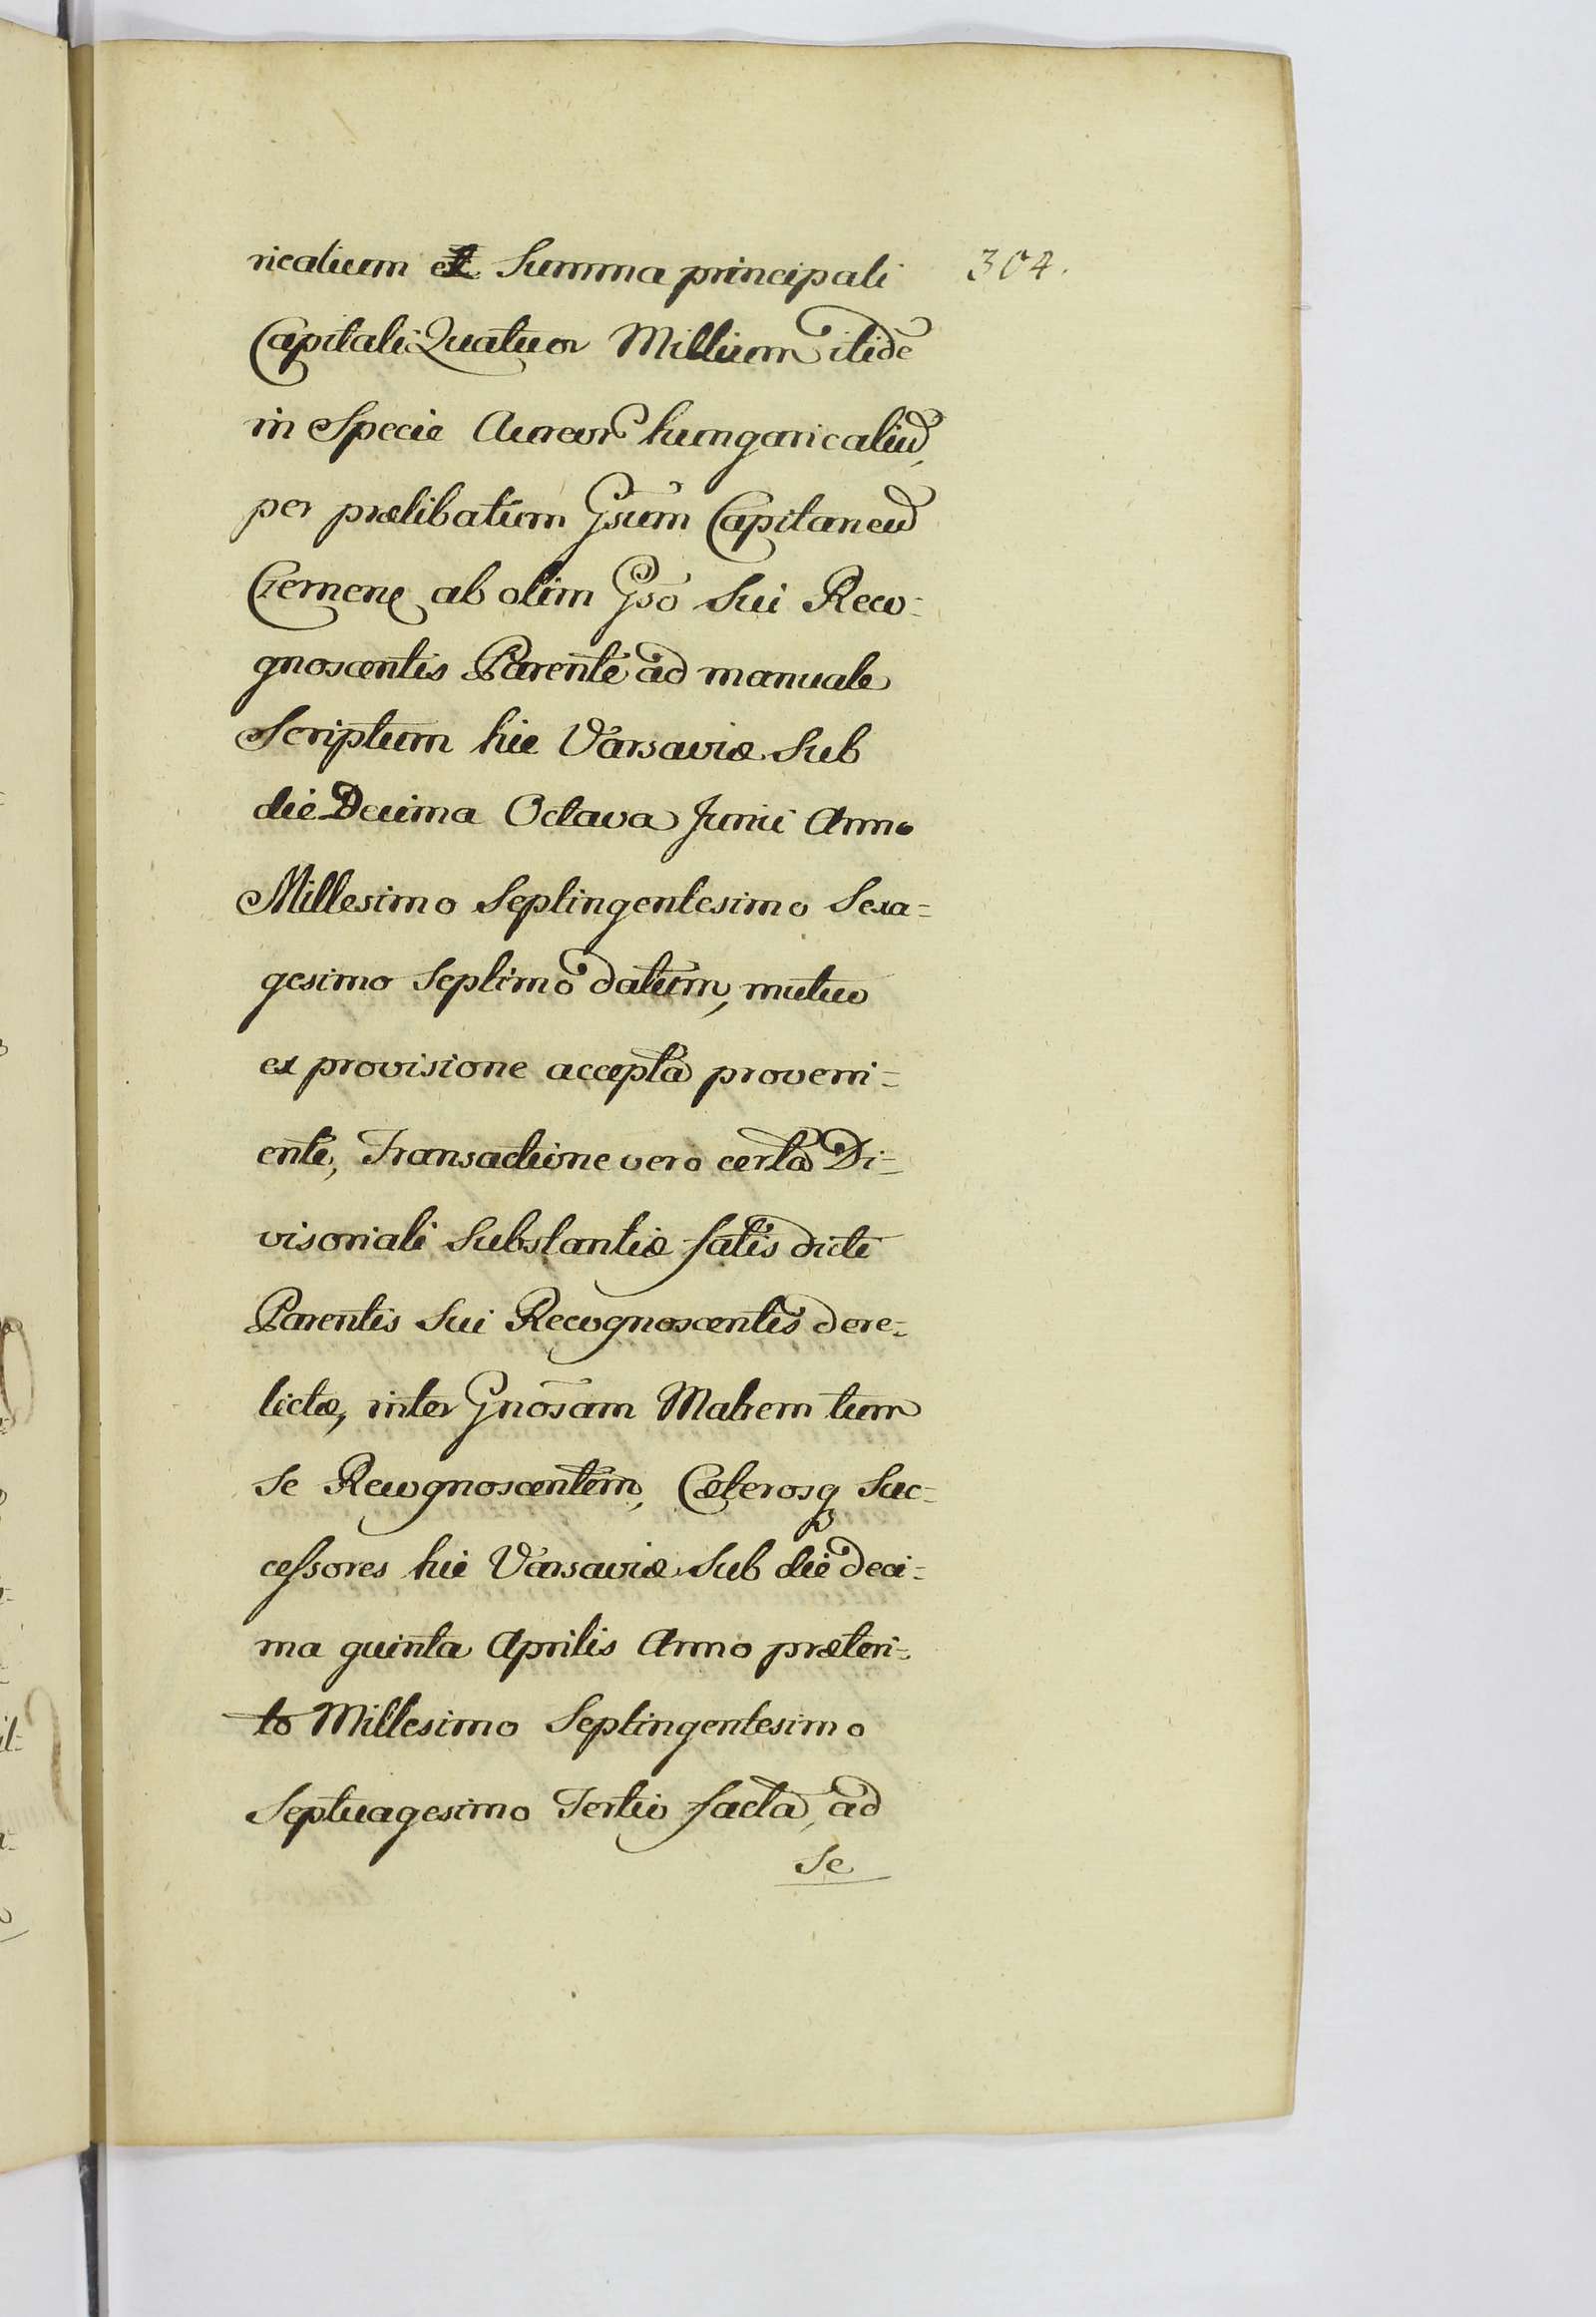 ricalium ex Summa principali
304.
Capitali Quatuor Millium itidē
in Specie Aureor hungaricaliū,
per prælibatum Gsum Capitaneū
Cremen ab olim Gso Sui Reco-
gnoscentis Parente ad manuale
Scriptum hic Varsaviæ sub
die Decima Octava Junii Anno
Millesimo Septingentesimo Sexa=
gesimo Septimo datum, mutuo
ex provisione accepta proveni=
ente, Transactione vero certa Di=
visoriali Substantiæ fatis dicti
Parentis Sui Recognoscentis dere=
lictæ, inter Gnosam Matrem tum
Se Recognoscentem, Cæterosq Suc=
cessores hic Varsaviæ Sub die deci=
ma quinta Aprilis Anno præteri=
to Millesimo Septingentesimo
Septuagesimo Tertio facta, ad
Se